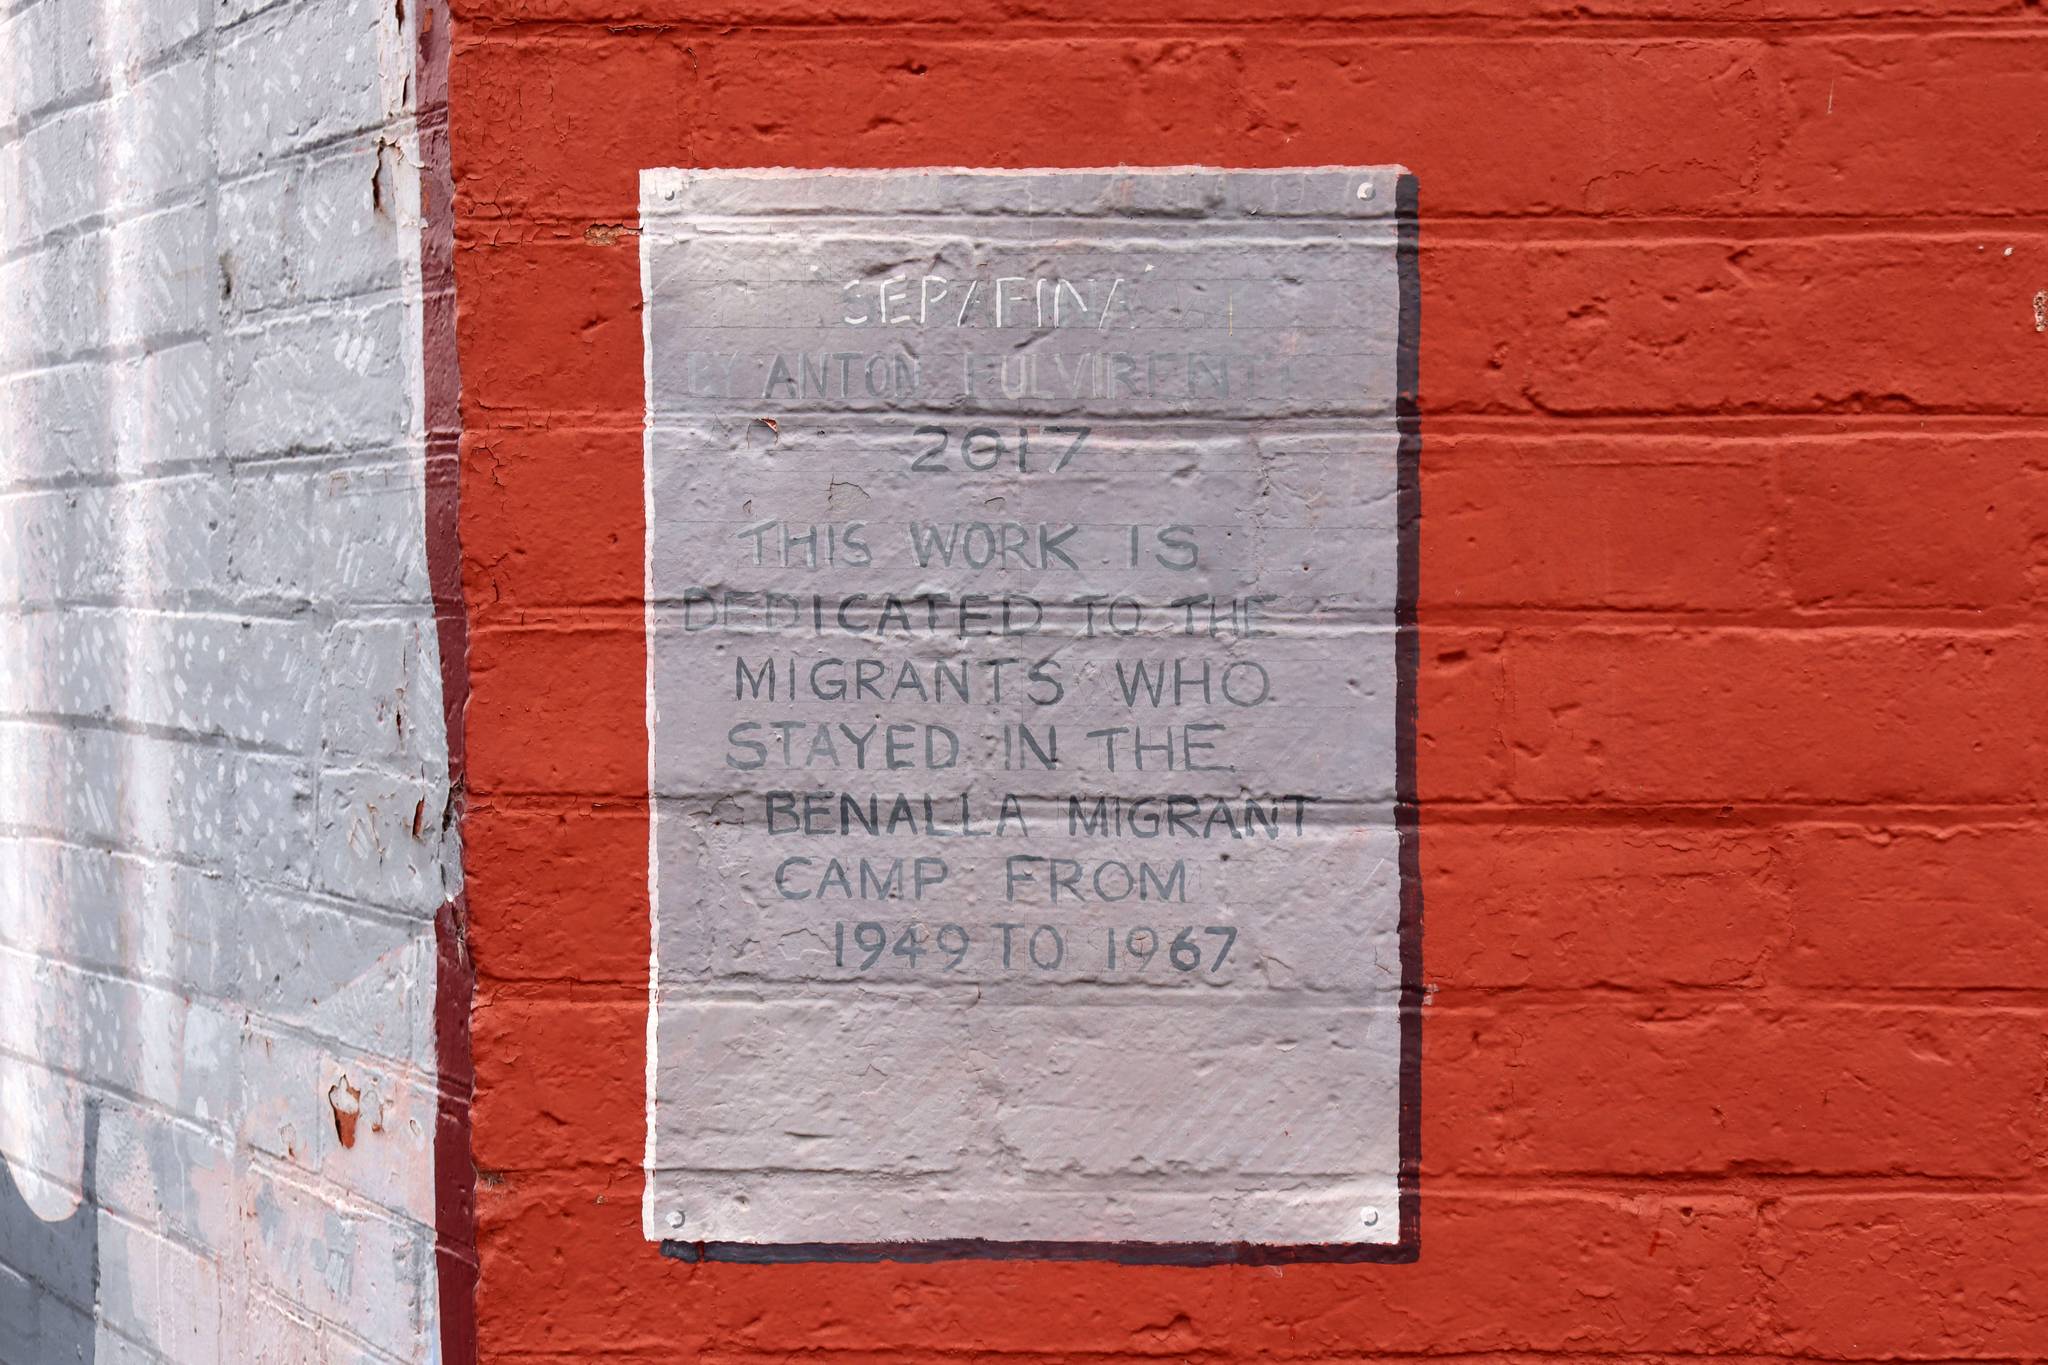 'SERAFINA'
BY ANTON PULVIRENTI
2017
THIS WORK IS
DEDICATED TO THE
MIGRANTS WHO
STAYED IN THE
BENALLA MIGRANT
CAMP FROM
1949 TO 1967